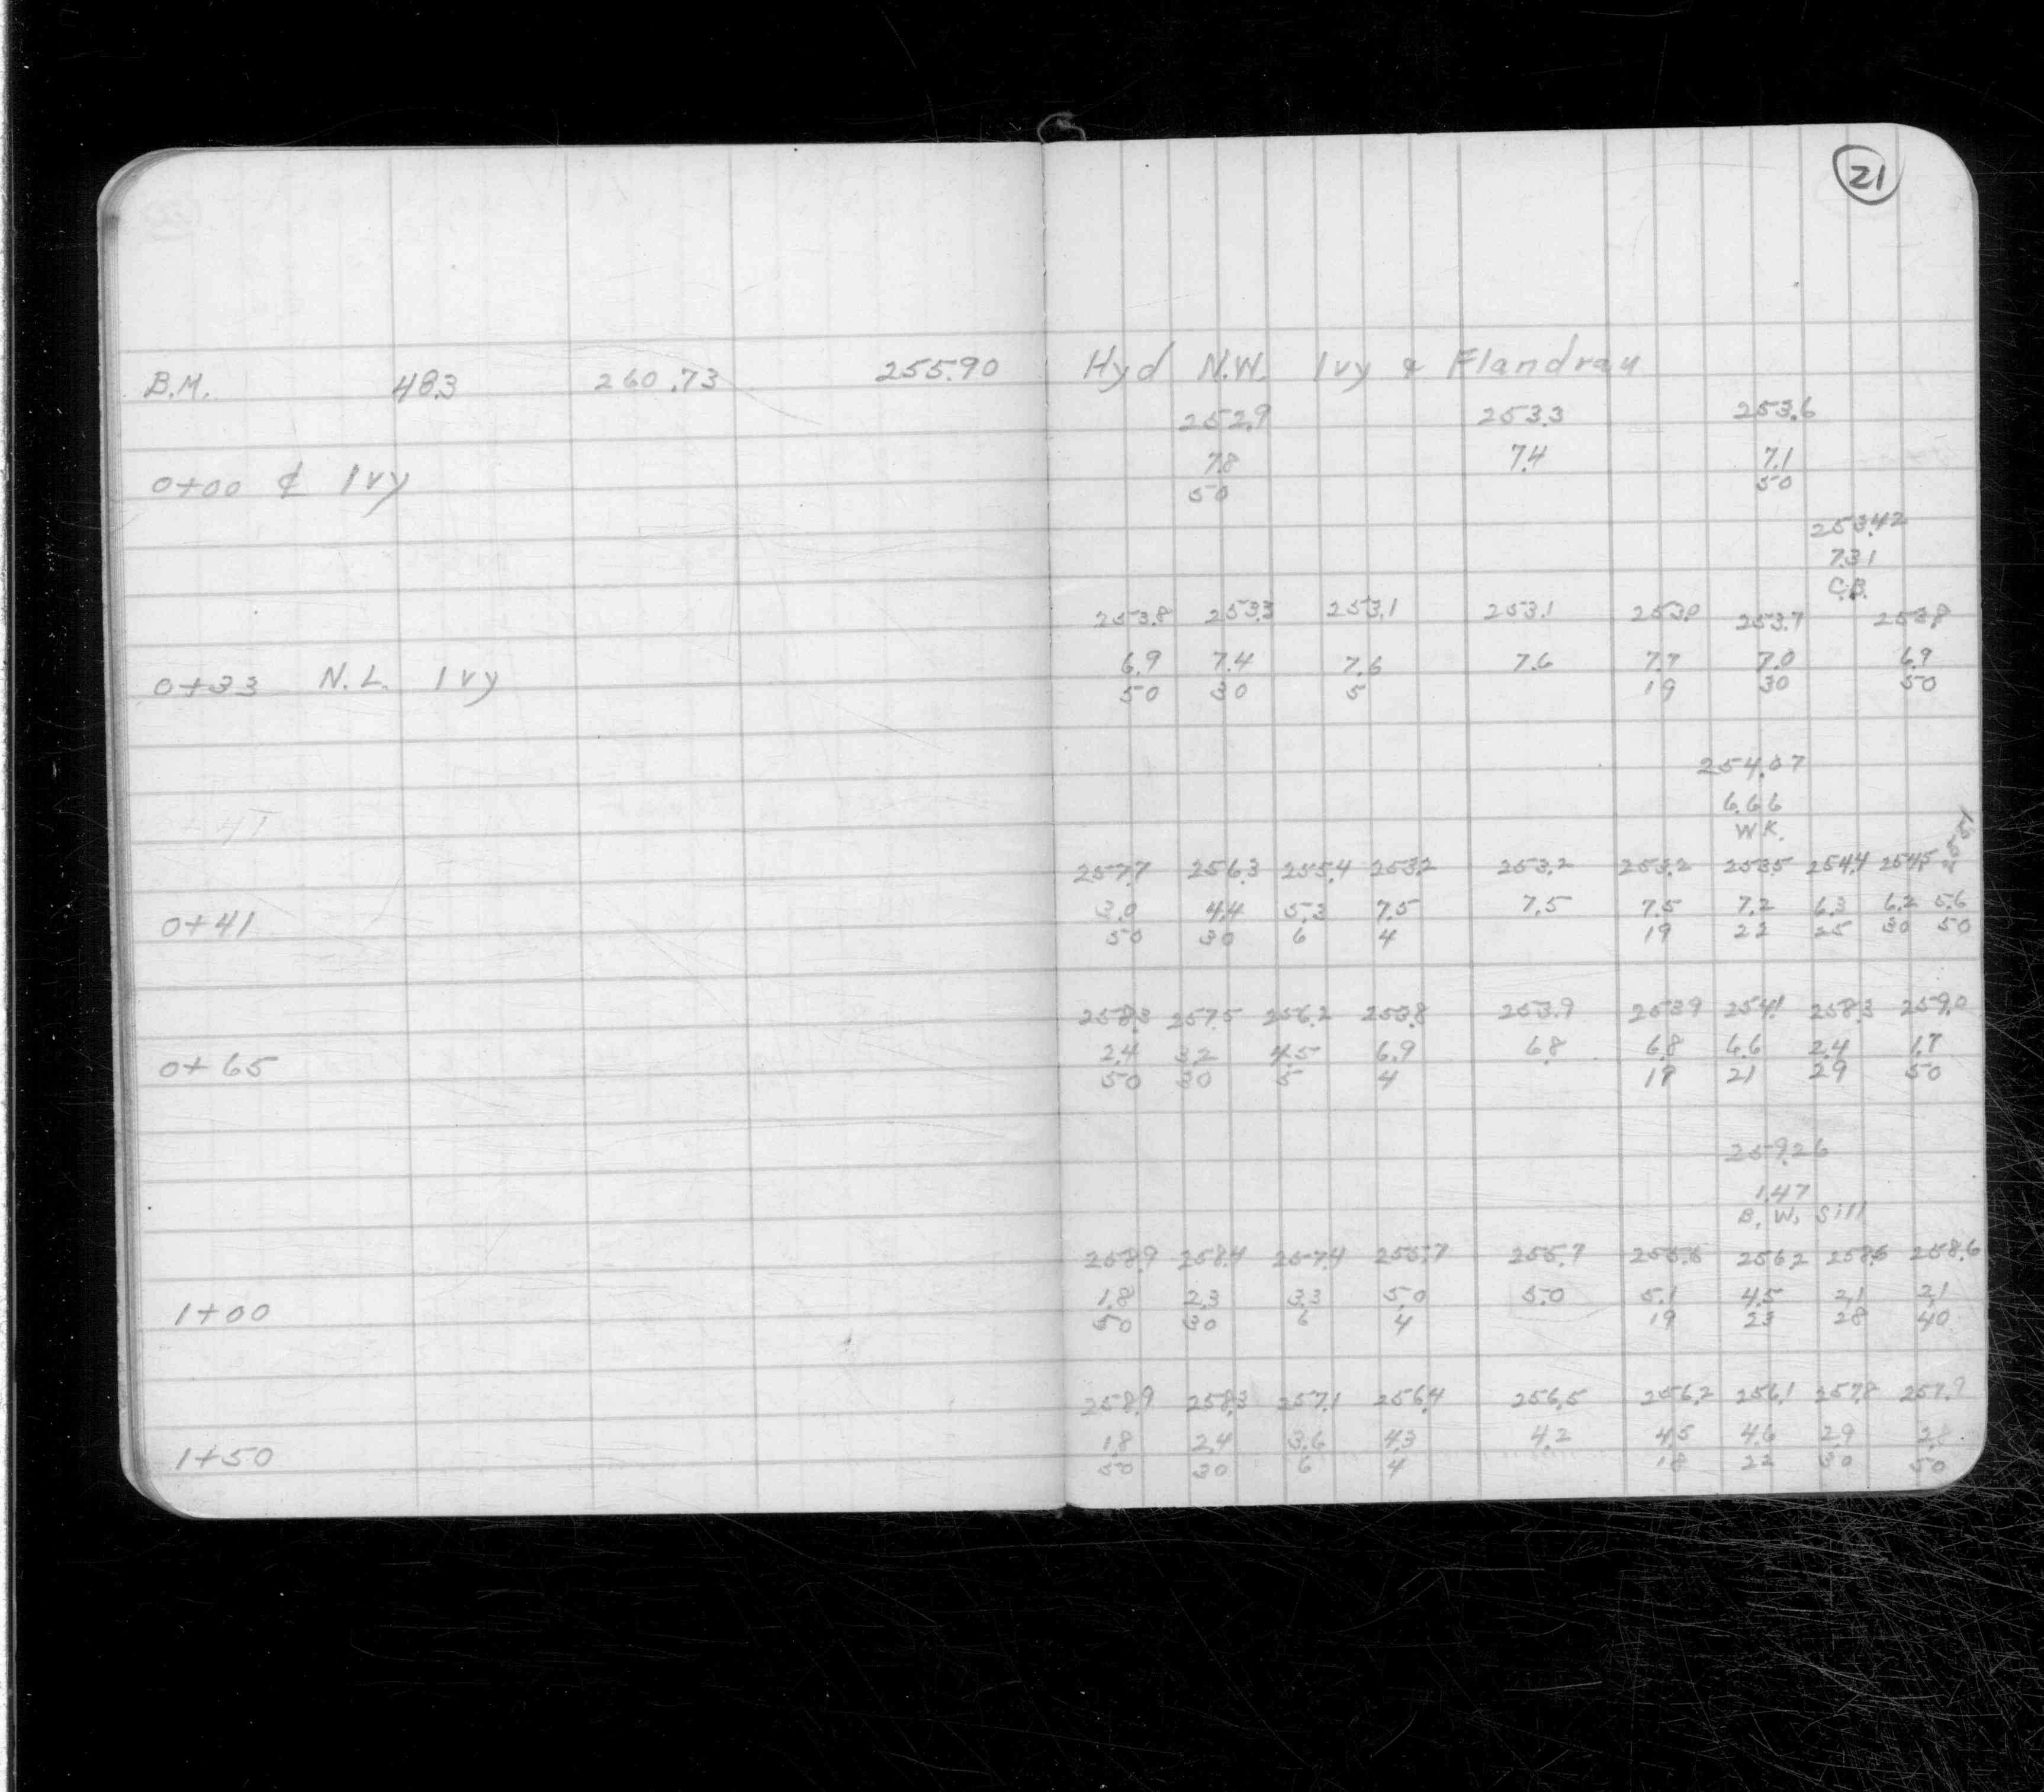 21
B.M. 483 260.73 255.90 Hyd N.W. Ivy & Flandrau
252.9 253.3 253.6
7.8 7.4 7.1
0+00 ℄ Ivy 50 50
253.42
7.31
C.B.
253.8 253.3 253.1 253.1 253.0 253.7 253.8
6.9 7.4 7.6 7.6 7.7 7.0 6.9
0+33 N.L. Ivy 50 30 5 19 30 50
254.07
6.66
W.K.
257.7 256.3 255.4 253.2 253.2 253.2 253.5 254.4 254.5 255.1
3.0 4.4 5.3 7.5 7.5 7.5 7.2 6.3 6.2 5.6
0+41 50 30 6 4 19 22 25 30 50
258.3 257.5 256.2 253.8 253.9 253.9 254.1 258.3 259.0
2.4 3.2 4.5 6.9 6.8 6.8 6.6 2.4 1.7
0+65 50 30 5 4 19 21 29 50
259.26
1.47
B. W. Sill
258.9 258.4 257.4 255.7 255.7 255.6 256.2 258.6 258.6
1.8 2.3 3.3 5.0 5.0 5.1 4.5 2.1 2.1
1+00 50 30 6 4 19 23 28 40
258.9 258.3 257.1 256.4 256.5 256.2 256.1 257.8 257.9
1.8 2.4 3.6 4.3 4.2 4.5 4.6 2.9 2.8
1+50 50 30 6 4 18 22 30 50